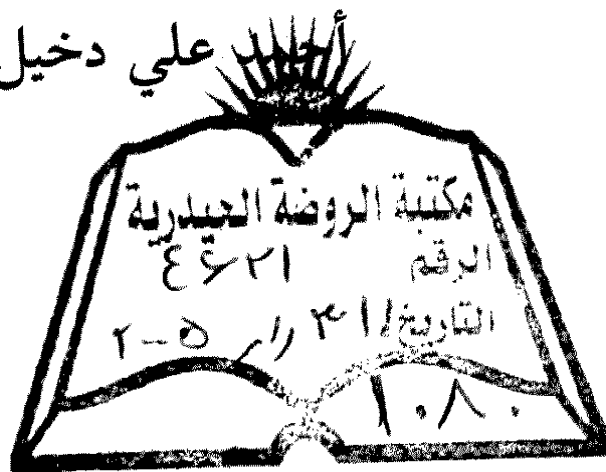 علي دخيل
مكتبة الروضة الحيدرية
الرقم ٤٦٢١
التاريخ
١٠٨٠